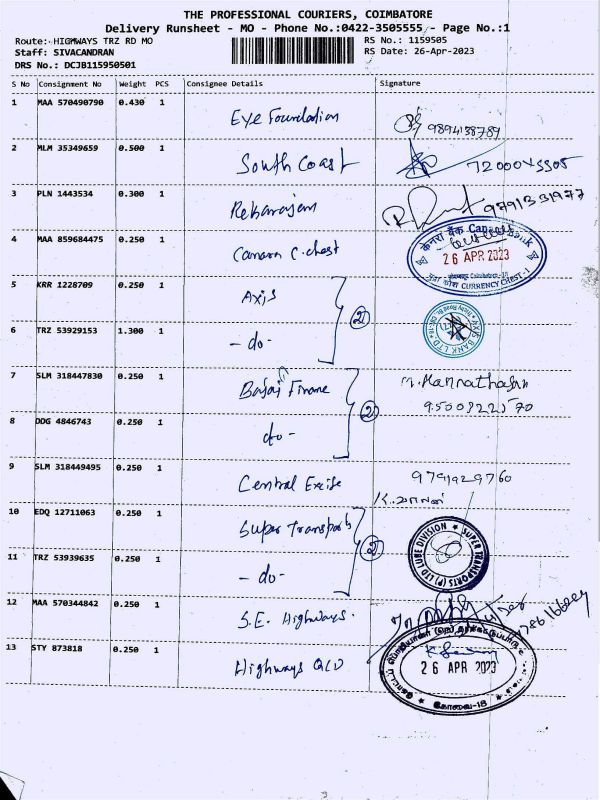 THE PROFESSIONAL COURIERS, COIMBATORE
Delivery Runsheet - MO - Phone No.:0422-3505555 - Page No.:1
Route: HIGHWAYS TRZ RD MO
RS No.: 1159505
Staff: SIVACANDRAN
RS Date: 26-Apr-2023
DRS No.: DCJB115950501
S No Consignment No Weight PCS Consignee Details Signature
1 MAA 570490790 0.430 1 Eye Foundation 9894138789
2 MLM 35349659 0.500 1 South Coast
3 PLN 1443534 0.300 1 9791331977
4 MAA 859684475 0.250 1 Canara C. chest
केनरा बैंक Canara Bank
26 APR 2023
CURRENCY CHEST-1
5 KRR 1228709 0.250 1 Axis
AXIS BANK LTD
6 TRZ 53929153 1.300 1 - do -
2
7 SLM 318447830 0.250 1 Bajaj Finance
8 DDG 4846743 0.250 1 do -
2
9 SLM 318449495 0.250 1 Central Excise
10 EDQ 12711063 0.250 1 Super Transports
SUPER TRANSPORTS (P) LTD LUBE DIVISION
11 TRZ 53939635 0.250 1 - do -
2
12 MAA 570344842 0.250 1 S.E. Highways.
13 STY 873818 0.250 1 Highways
26 APR 2023
கோவை-18